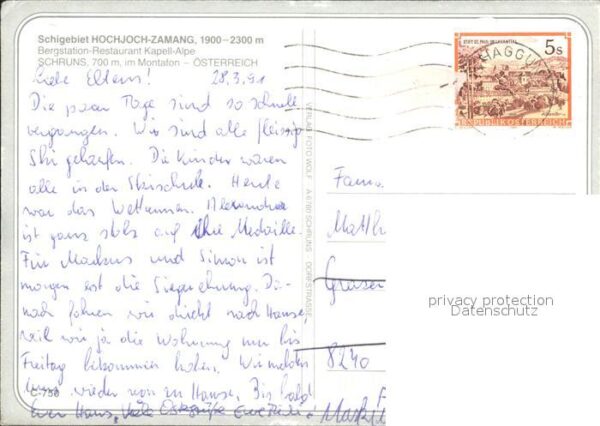 Schigebiet HOCHJOCH-ZAMANG, 1900–2300 m
Bergstation-Restaurant Kapell-Alpe
SCHRUNS, 700 m, im Montafon – ÖSTERREICH
Liebe Eltern! 28.3.91
Die paar Tage sind so schnell
vergangen. Wir sind alle fleissig
Ski gelaufen. Die Kinder waren
alle in der Skischule. Heute
war das Wettrennen. Alexandra
ist ganz stolz auf ihre Medaille.
Für Markus und Simon ist
morgen erst die Siegerehrung. Da-
nach fahren wir direkt nach Hause,
weil wir ja die Wohnung nur bis
Freitag bekommen haben. Wir melden
uns wieder von zu Hause. Bis bald!
Euer Hans, viele Ostergrüße Eure
C 730
VERLAG FOTO WOLF A-6780 SCHRUNS DORFSTRASSE
STIFT ST. PAUL IM LAVANTTAL
5 S
REPUBLIK ÖSTERREICH
HAGGU
Fam.
Matth
8240
privacy protection
Datenschutz